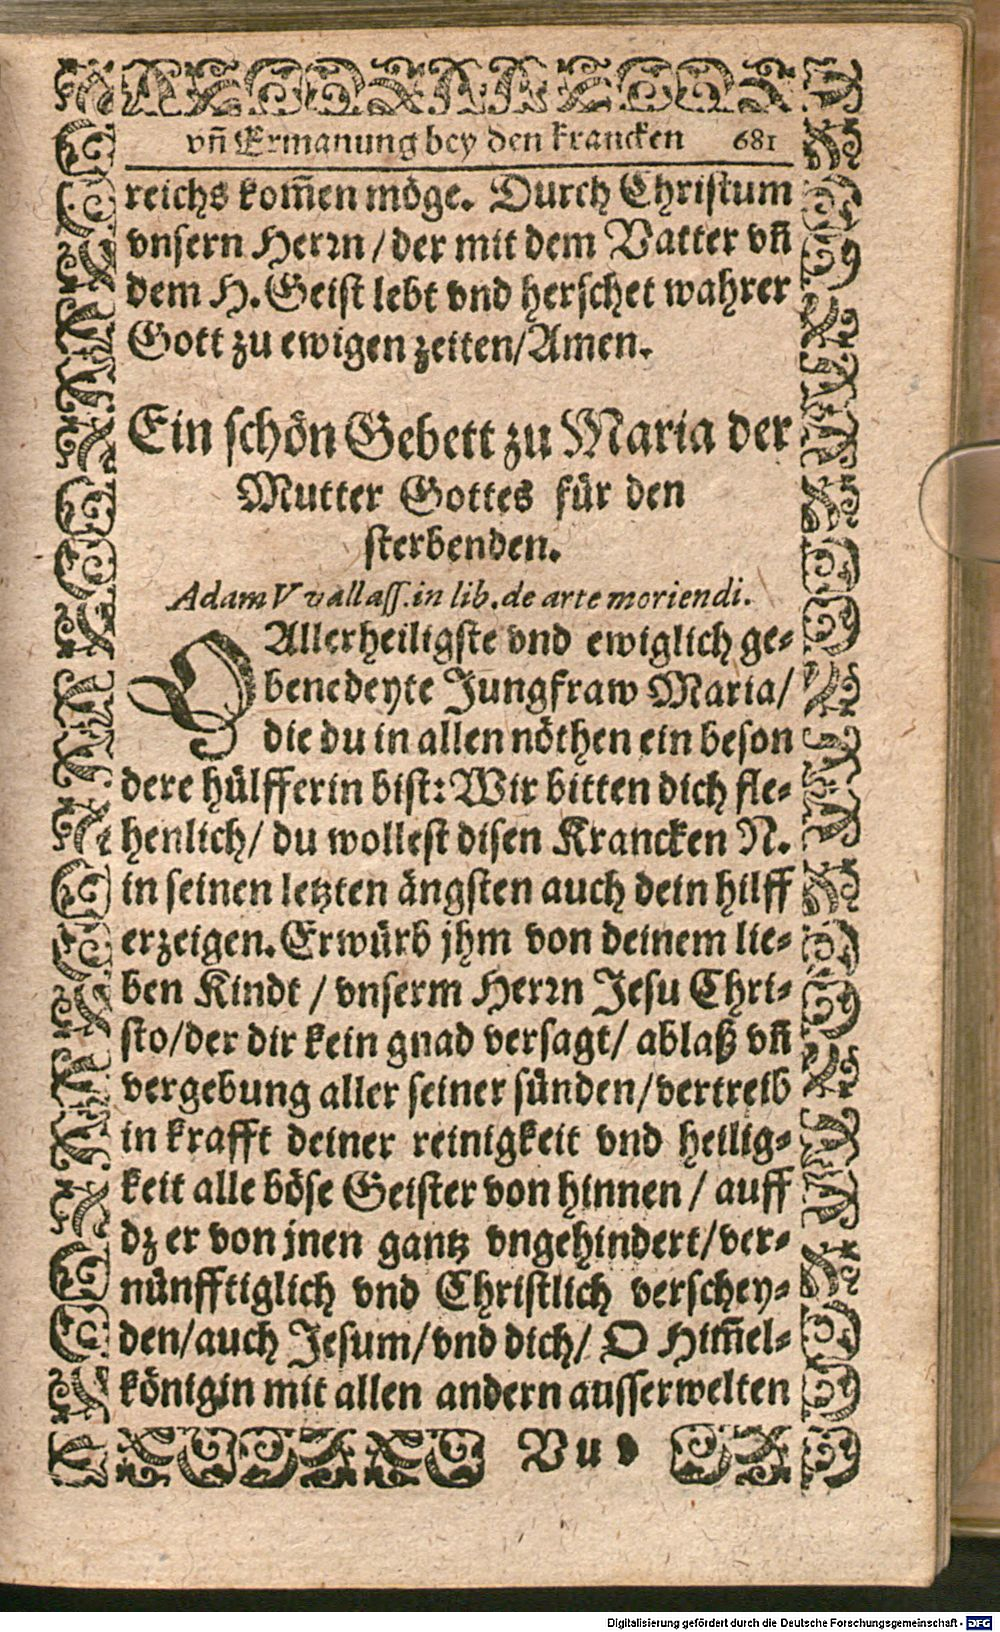 vñ Ermanung bey den krancken 681
reichs kom̃en möge. Durch Christum
vnsern Herrn / der mit dem Vatter vñ
dem H. Geist lebt vnd herschet wahrer
Gott zu ewigen zeiten/Amen.
Ein schön Gebett zu Maria der
Mutter Gottes für den
sterbenden.
Adam VVallass. in lib. de arte moriendi.
O Allerheiligste vnd ewiglich ge-
benedeyte Jungfraw Maria/
die du in allen nöthen ein beson
dere hülfferin bist: Wir bitten dich fle-
henlich/ du wollest disen Krancken N.
in seinen letzten ängsten auch dein hilff
erzeigen. Erwürb jhm von deinem lie-
ben Kindt / vnserm Herrn Jesu Chri-
sto/der dir kein gnad versagt/ ablaß vñ
vergebung aller seiner sünden/vertreib
in krafft deiner reinigkeit vnd heilig-
keit alle böse Geister von hinnen / auff
dz er von jnen gantz vngehindert/ver-
nünfftiglich vnd Christlich verschey-
den/auch Jesum/vnd dich/ O Him̃el-
königin mit allen andern ausserwelten
Vu
Digitalisierung gefördert durch die Deutsche Forschungsgemeinschaft - DFG